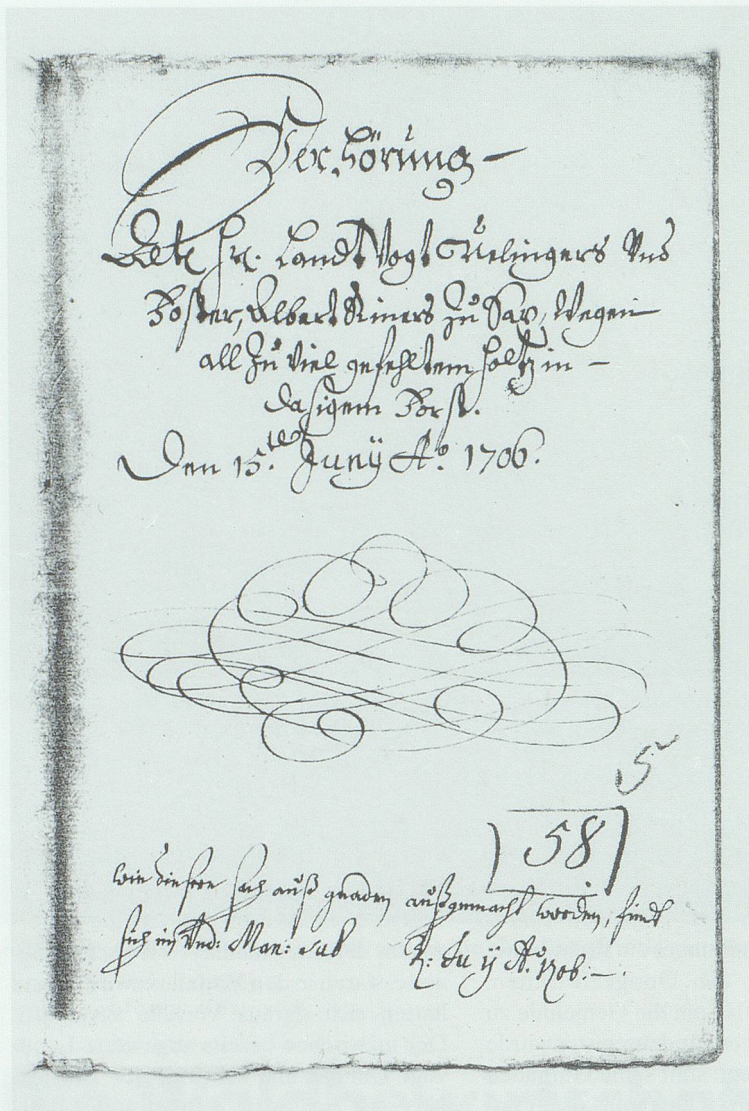 Verhörung –
Hr. Landt Vogt Vnd
Forster, Albert Riners zu Sax, Wegen
all zu viel gefehltem holtz in –
dasigem Forst.
Den 15.ten Junÿ Aº. 1706.
5
58
wie diesere sach auß gnaden außgemacht worden, findt
sich im Man: sub Aº. 1706. –.